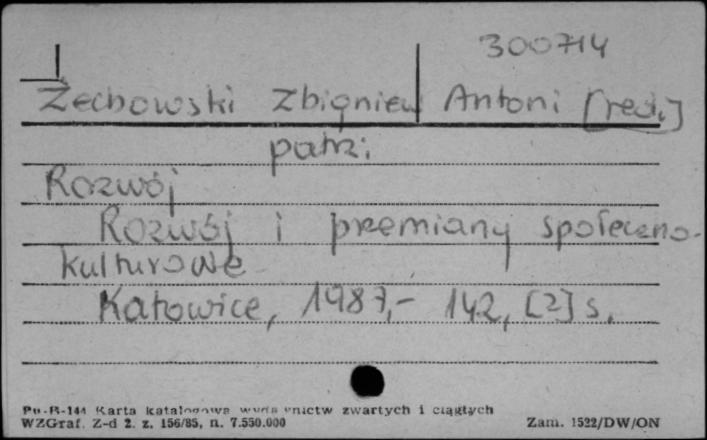 300714
Żechowski Zbigniew Antoni [red.]
patrz:
Rozwój
Rozwój i przemiany społeczno-
kulturowe
Katowice, 1987,- 142, [2] s.
Pu-B-144 Karta katalogowa wydawnictw zwartych i ciągłych
WZGraf. Z-d 2. z. 156/85, n. 7.550.000 Zam. 1522/DW/ON